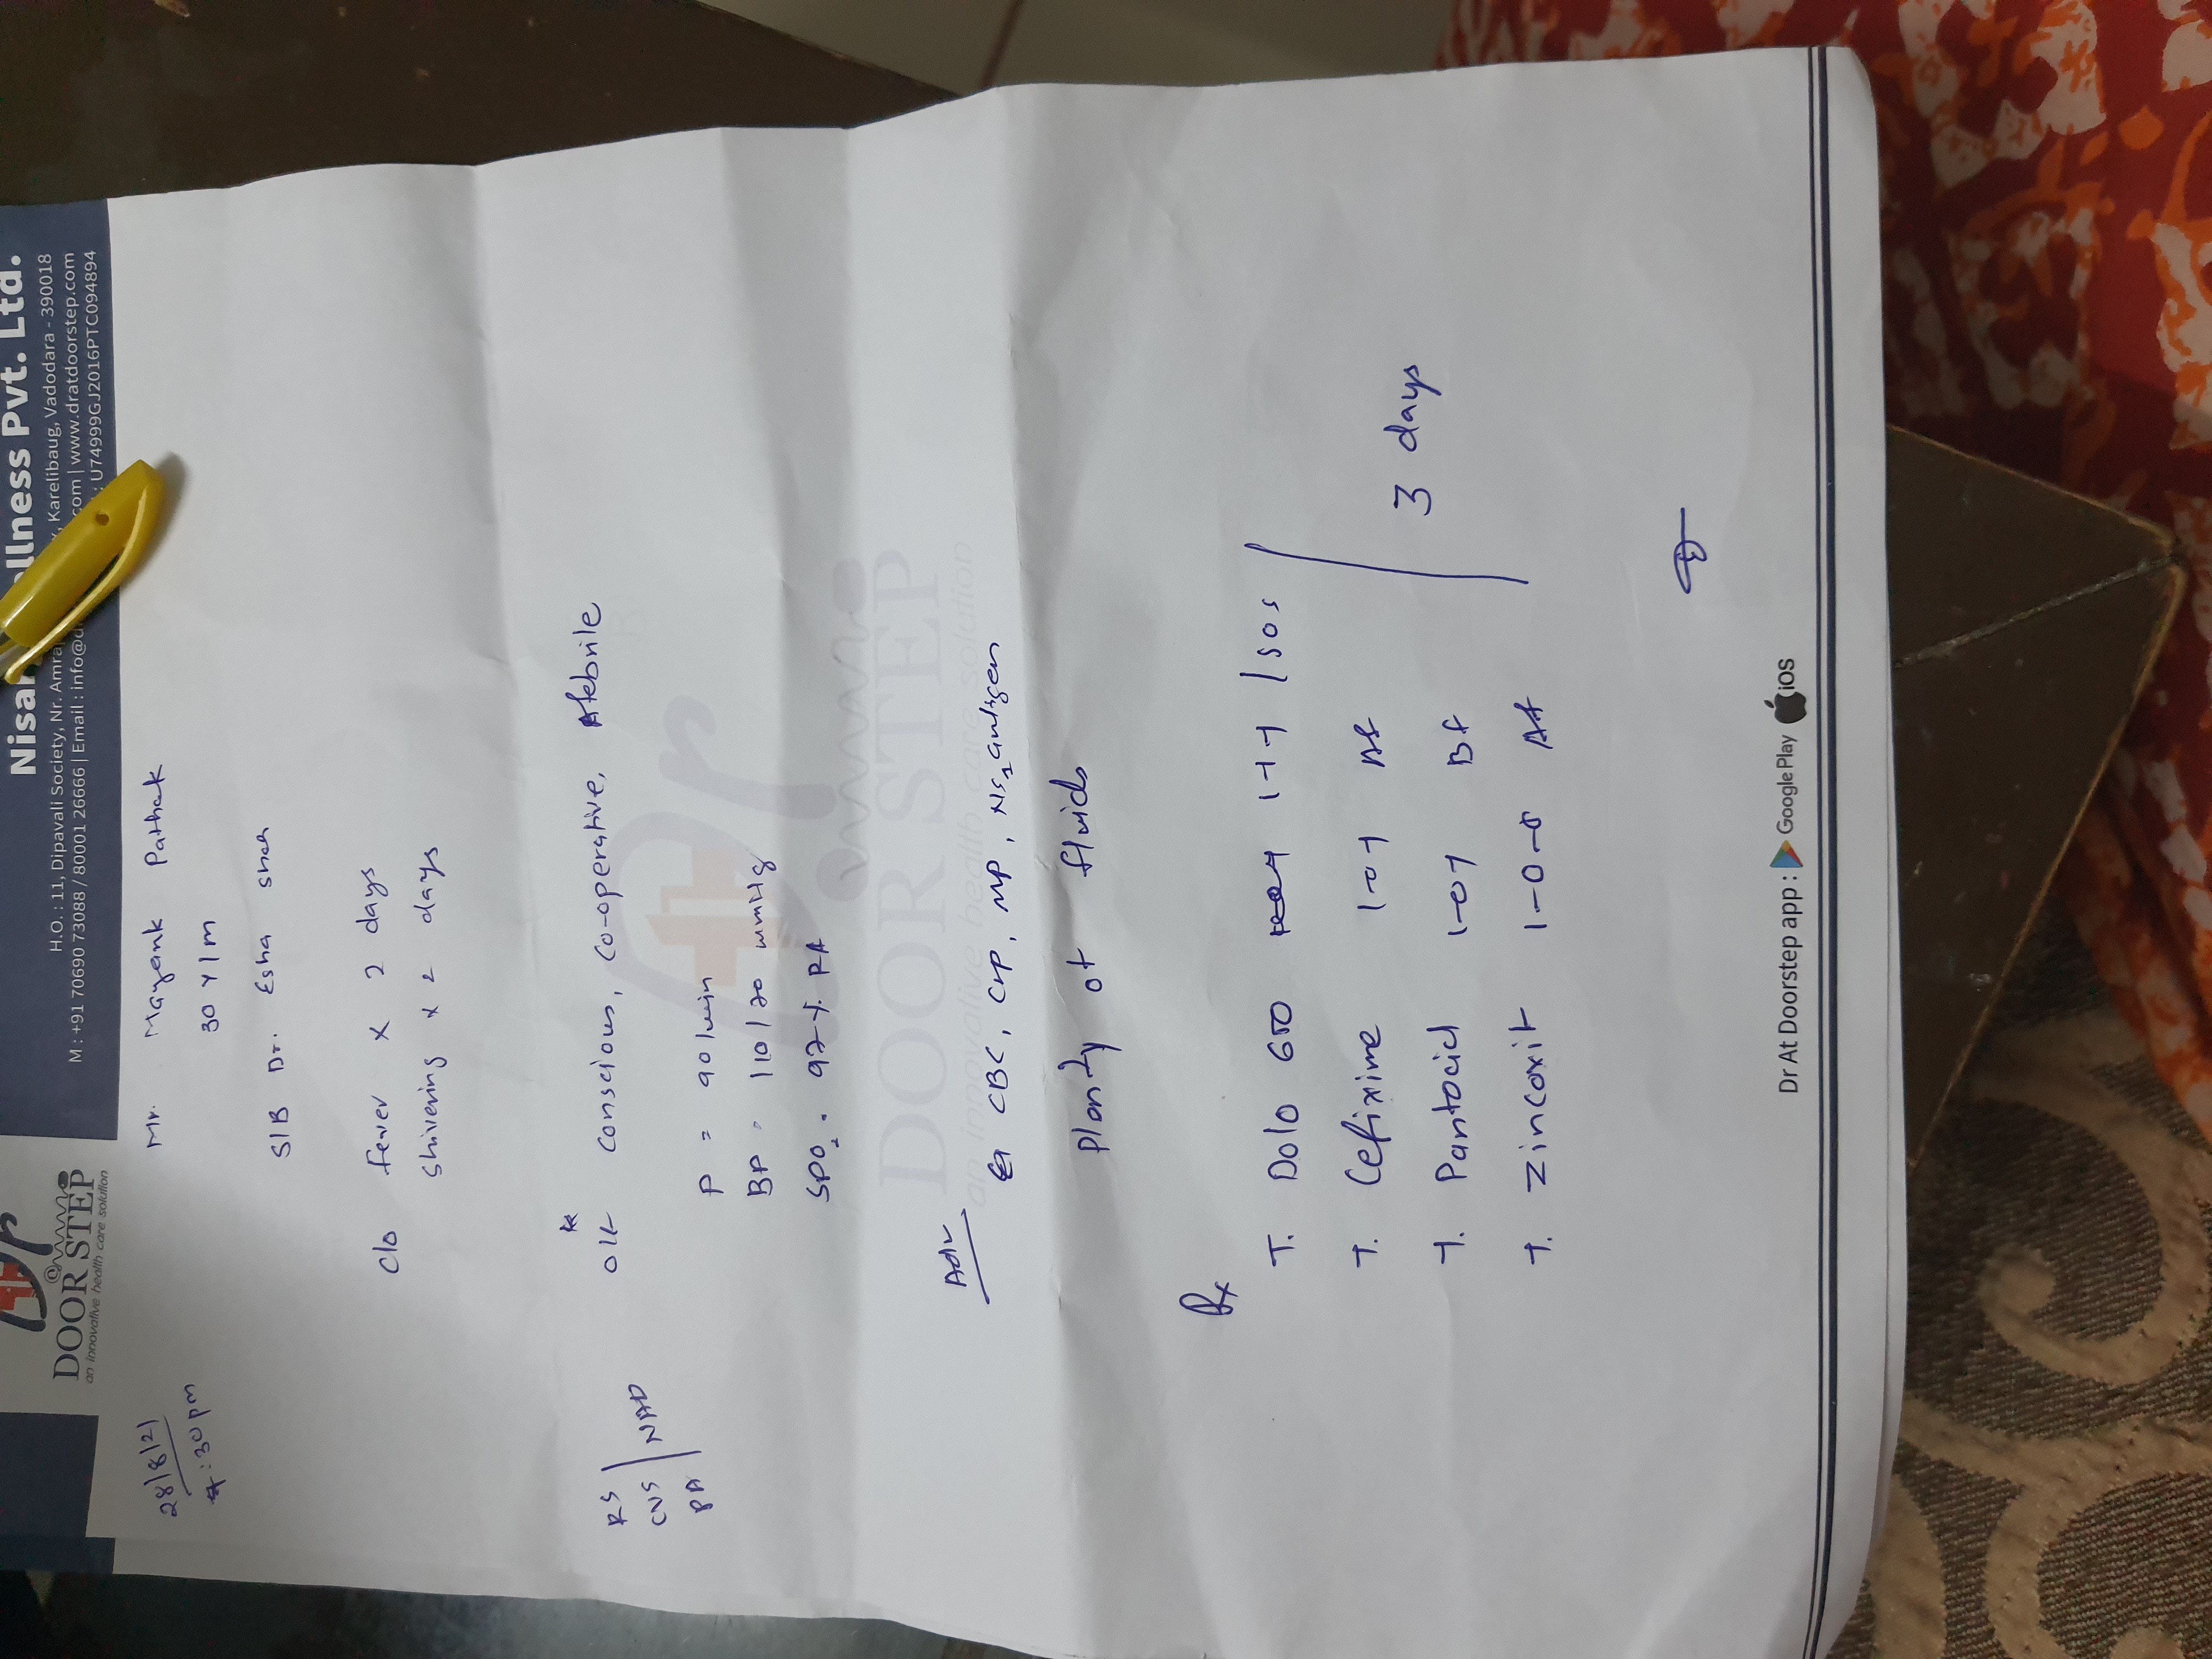 Dr
DOOR STEP
an innovative health care solution
Nisar llness Pvt. Ltd.
H.O. : 11, Dipavali Society, Nr. Amra , Karelibaug, Vadodara - 390018
M : +91 70690 73088 / 80001 26666 | Email : info@d com | www.dratdoorstep.com
: U74999GJ2016PTC094894
28/8/21
7:30pm
Mr. Mayank Pathak
30 Y/M
S/B Dr. Esha Shah
C/o fever x 2 days
shivering x 2 days
RS
CVS NAD
PA
conscious, co-operative, Afebrile
P = 90/min
BP = 110/70 mmHg
SPO2 . 97% RA
Dr
DOOR STEP
an innovative health care solution
Adv
CBC, CRP, MP, NS1 antigen
Plenty of fluids
Rx
T. Dolo 650 1-1-1 / SOS
T. Cefixime 1-0-1 Af
T. Pantocid 1-0-1 Bf
T. Zincovit 1-0-0 Af
3 days
Dr At Doorstep app : Google Play iOS